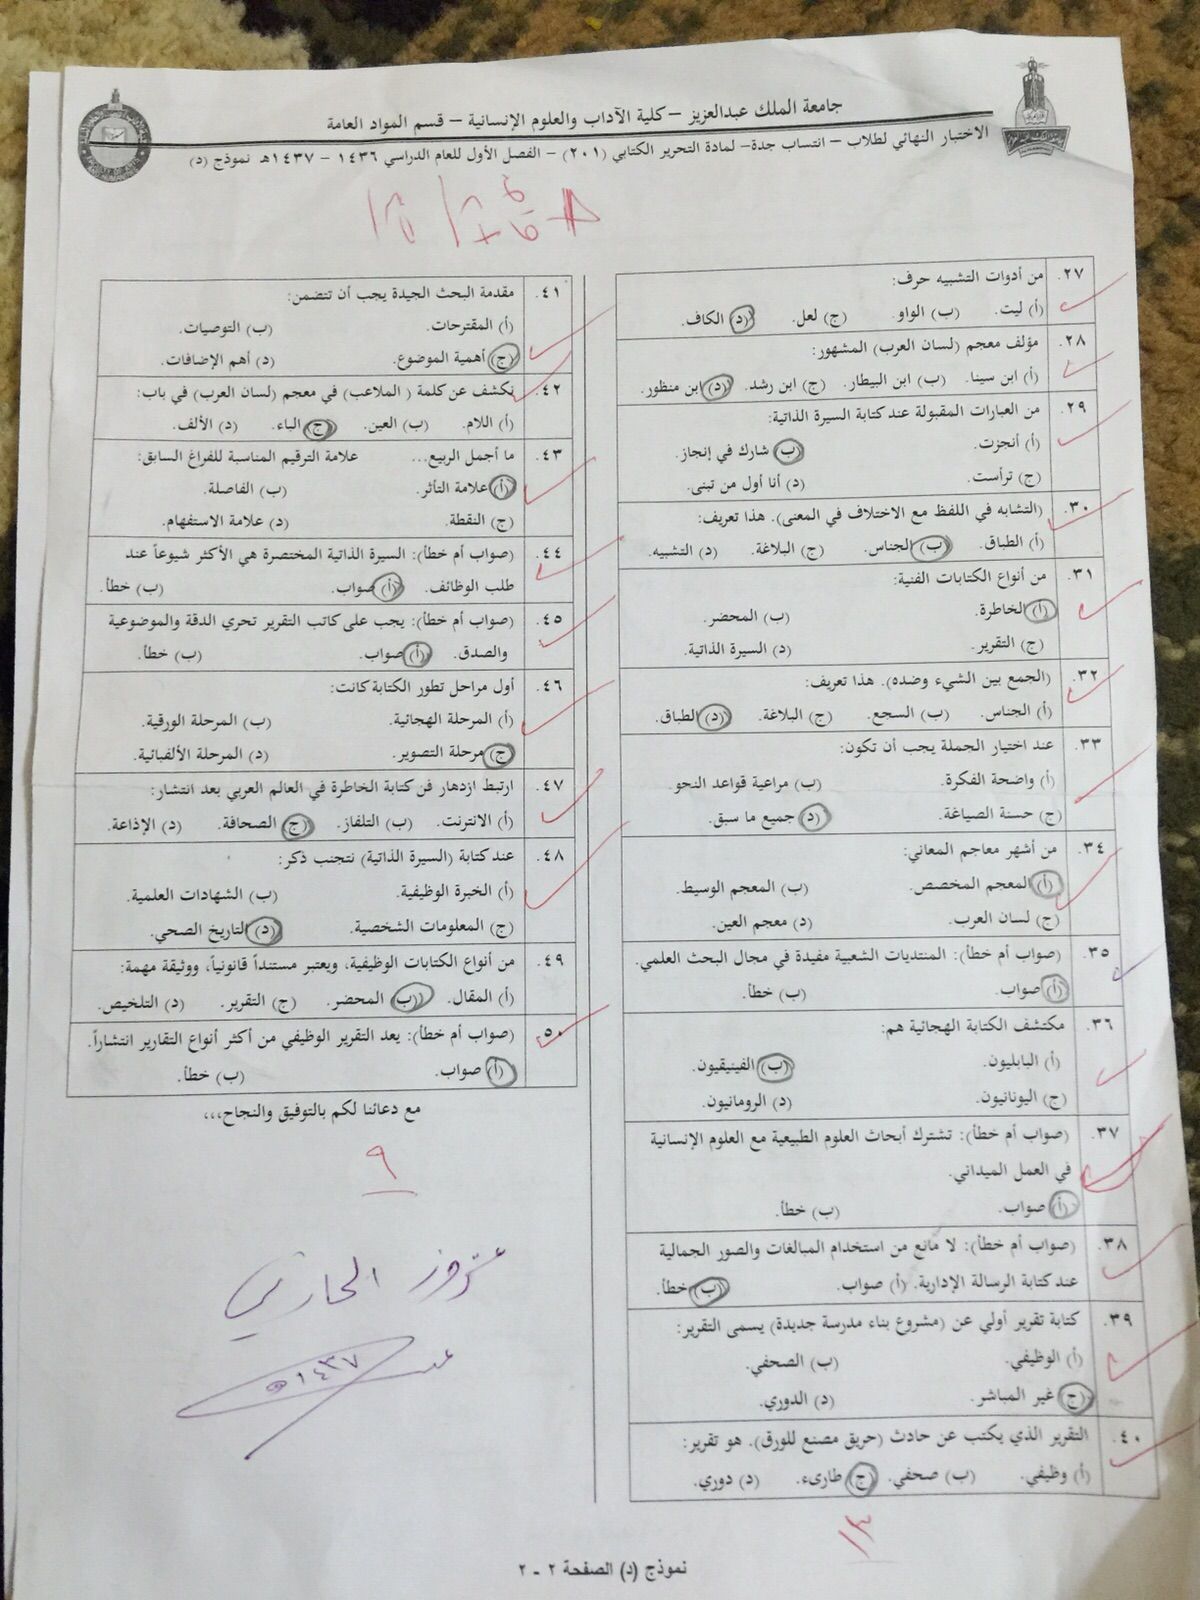 جامعة الملك عبدالعزيز – كلية الآداب والعلوم الإنسانية – قسم المواد العامة
الاختبار النهائي لطلاب – انتساب جدة– لمادة التحرير الكتابي (٢٠١) – الفصل الأول للعام الدراسي ١٤٣٦ – ١٤٣٧هـ نموذج (د)
٢٧. من أدوات التشبيه حرف:
(أ) ليت. (ب) الواو. (ج) لعل. (د) الكاف.
٢٨. مؤلف معجم (لسان العرب) المشهور:
(أ) ابن سينا. (ب) ابن البيطار. (ج) ابن رشد. (د) ابن منظور.
٢٩. من العبارات المقبولة عند كتابة السيرة الذاتية:
(أ) أنجزت. (ب) شارك في إنجاز.
(ج) ترأست. (د) أنا أول من تبنى.
٣٠. (التشابه في اللفظ مع الاختلاف في المعنى). هذا تعريف:
(أ) الطباق. (ب) الجناس. (ج) البلاغة. (د) التشبيه.
٣١. من أنواع الكتابات الفنية:
(أ) الخاطرة. (ب) المحضر.
(ج) التقرير. (د) السيرة الذاتية.
٣٢. (الجمع بين الشيء وضده). هذا تعريف:
(أ) الجناس. (ب) السجع. (ج) البلاغة. (د) الطباق.
٣٣. عند اختيار الجملة يجب أن تكون:
(أ) واضحة الفكرة. (ب) مراعية قواعد النحو.
(ج) حسنة الصياغة. (د) جميع ما سبق.
٣٤. من أشهر معاجم المعاني:
(أ) المعجم المخصص. (ب) المعجم الوسيط.
(ج) لسان العرب. (د) معجم العين.
٣٥. (صواب أم خطأ): المنتديات الشعبية مفيدة في مجال البحث العلمي.
(أ) صواب. (ب) خطأ.
٣٦. مكتشف الكتابة الهجائية هم:
(أ) البابليون. (ب) الفينيقيون.
(ج) اليونانيون. (د) الرومانيون.
٣٧. (صواب أم خطأ): تشترك أبحاث العلوم الطبيعية مع العلوم الإنسانية
في العمل الميداني.
(أ) صواب. (ب) خطأ.
٣٨. (صواب أم خطأ): لا مانع من استخدام المبالغات والصور الجمالية
عند كتابة الرسالة الإدارية. (أ) صواب. (ب) خطأ.
٣٩. كتابة تقرير أولي عن (مشروع بناء مدرسة جديدة) يسمى التقرير:
(أ) الوظيفي. (ب) الصحفي.
(ج) غير المباشر. (د) الدوري.
٤٠. التقرير الذي يكتب عن حادث (حريق مصنع للورق). هو تقرير:
(أ) وظيفي. (ب) صحفي. (ج) طارىء. (د) دوري.
١٣
٤١. مقدمة البحث الجيدة يجب أن تتضمن:
(أ) المقترحات. (ب) التوصيات.
(ج) أهمية الموضوع. (د) أهم الإضافات.
٤٢. نكشف عن كلمة ( الملاعب) في معجم (لسان العرب) في باب:
(أ) اللام. (ب) العين. (ج) الباء. (د) الألف.
٤٣. ما أجمل الربيع... علامة الترقيم المناسبة للفراغ السابق:
(أ) علامة التأثر. (ب) الفاصلة.
(ج) النقطة. (د) علامة الاستفهام.
٤٤. (صواب أم خطأ): السيرة الذاتية المختصرة هي الأكثر شيوعاً عند
طلب الوظائف. (أ) صواب. (ب) خطأ.
٤٥. (صواب أم خطأ): يجب على كاتب التقرير تحري الدقة والموضوعية
والصدق. (أ) صواب. (ب) خطأ.
٤٦. أول مراحل تطور الكتابة كانت:
(أ) المرحلة الهجائية. (ب) المرحلة الورقية.
(ج) مرحلة التصوير. (د) المرحلة الألفبائية.
٤٧. ارتبط ازدهار فن كتابة الخاطرة في العالم العربي بعد انتشار:
(أ) الانترنت. (ب) التلفاز. (ج) الصحافة. (د) الإذاعة.
٤٨. عند كتابة (السيرة الذاتية) نتجنب ذكر:
(أ) الخبرة الوظيفية. (ب) الشهادات العلمية.
(ج) المعلومات الشخصية. (د) التاريخ الصحي.
٤٩. من أنواع الكتابات الوظيفية، ويعتبر مستنداً قانونياً، ووثيقة مهمة:
(أ) المقال. (ب) المحضر. (ج) التقرير. (د) التلخيص.
٥٠. (صواب أم خطأ): يعد التقرير الوظيفي من أكثر أنواع التقارير انتشاراً.
(أ) صواب. (ب) خطأ.
مع دعائنا لكم بالتوفيق والنجاح،،،
٩
الحازمي
١٤٣٧هـ
نموذج (د) الصفحة ٢ - ٢